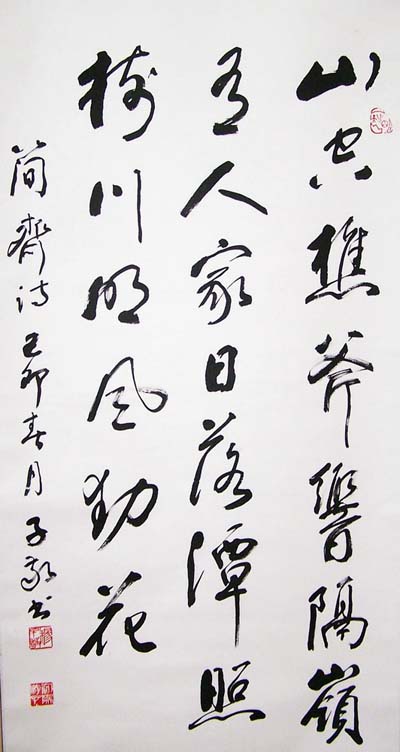 山空樵斧響隔嶺
有人家日落潭照
樹川明風動花
簡齋詩己卯春月子敬書